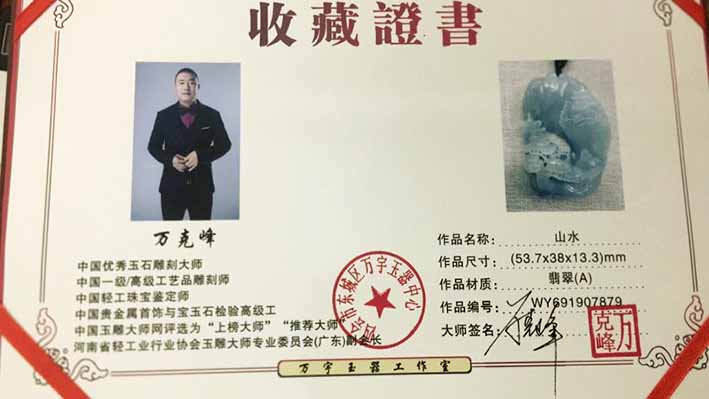 收藏證書
万克峰
中国优秀玉石雕刻大师
中国一级/高级工艺品雕刻师
中国轻工珠宝鉴定师
中国贵金属首饰与宝玉石检验高级工
中国玉雕大师网评选为“上榜大师”“推荐大师”
河南省轻工业行业协会玉雕大师专业委员会(广东)副会长
作品名称: 山水
作品尺寸: (53.7x38x13.3)mm
作品材质: 翡翠(A)
作品编号: WY691907879
大师签名:
万克峰
市东城区万宇玉器中心
万宇玉器工作室